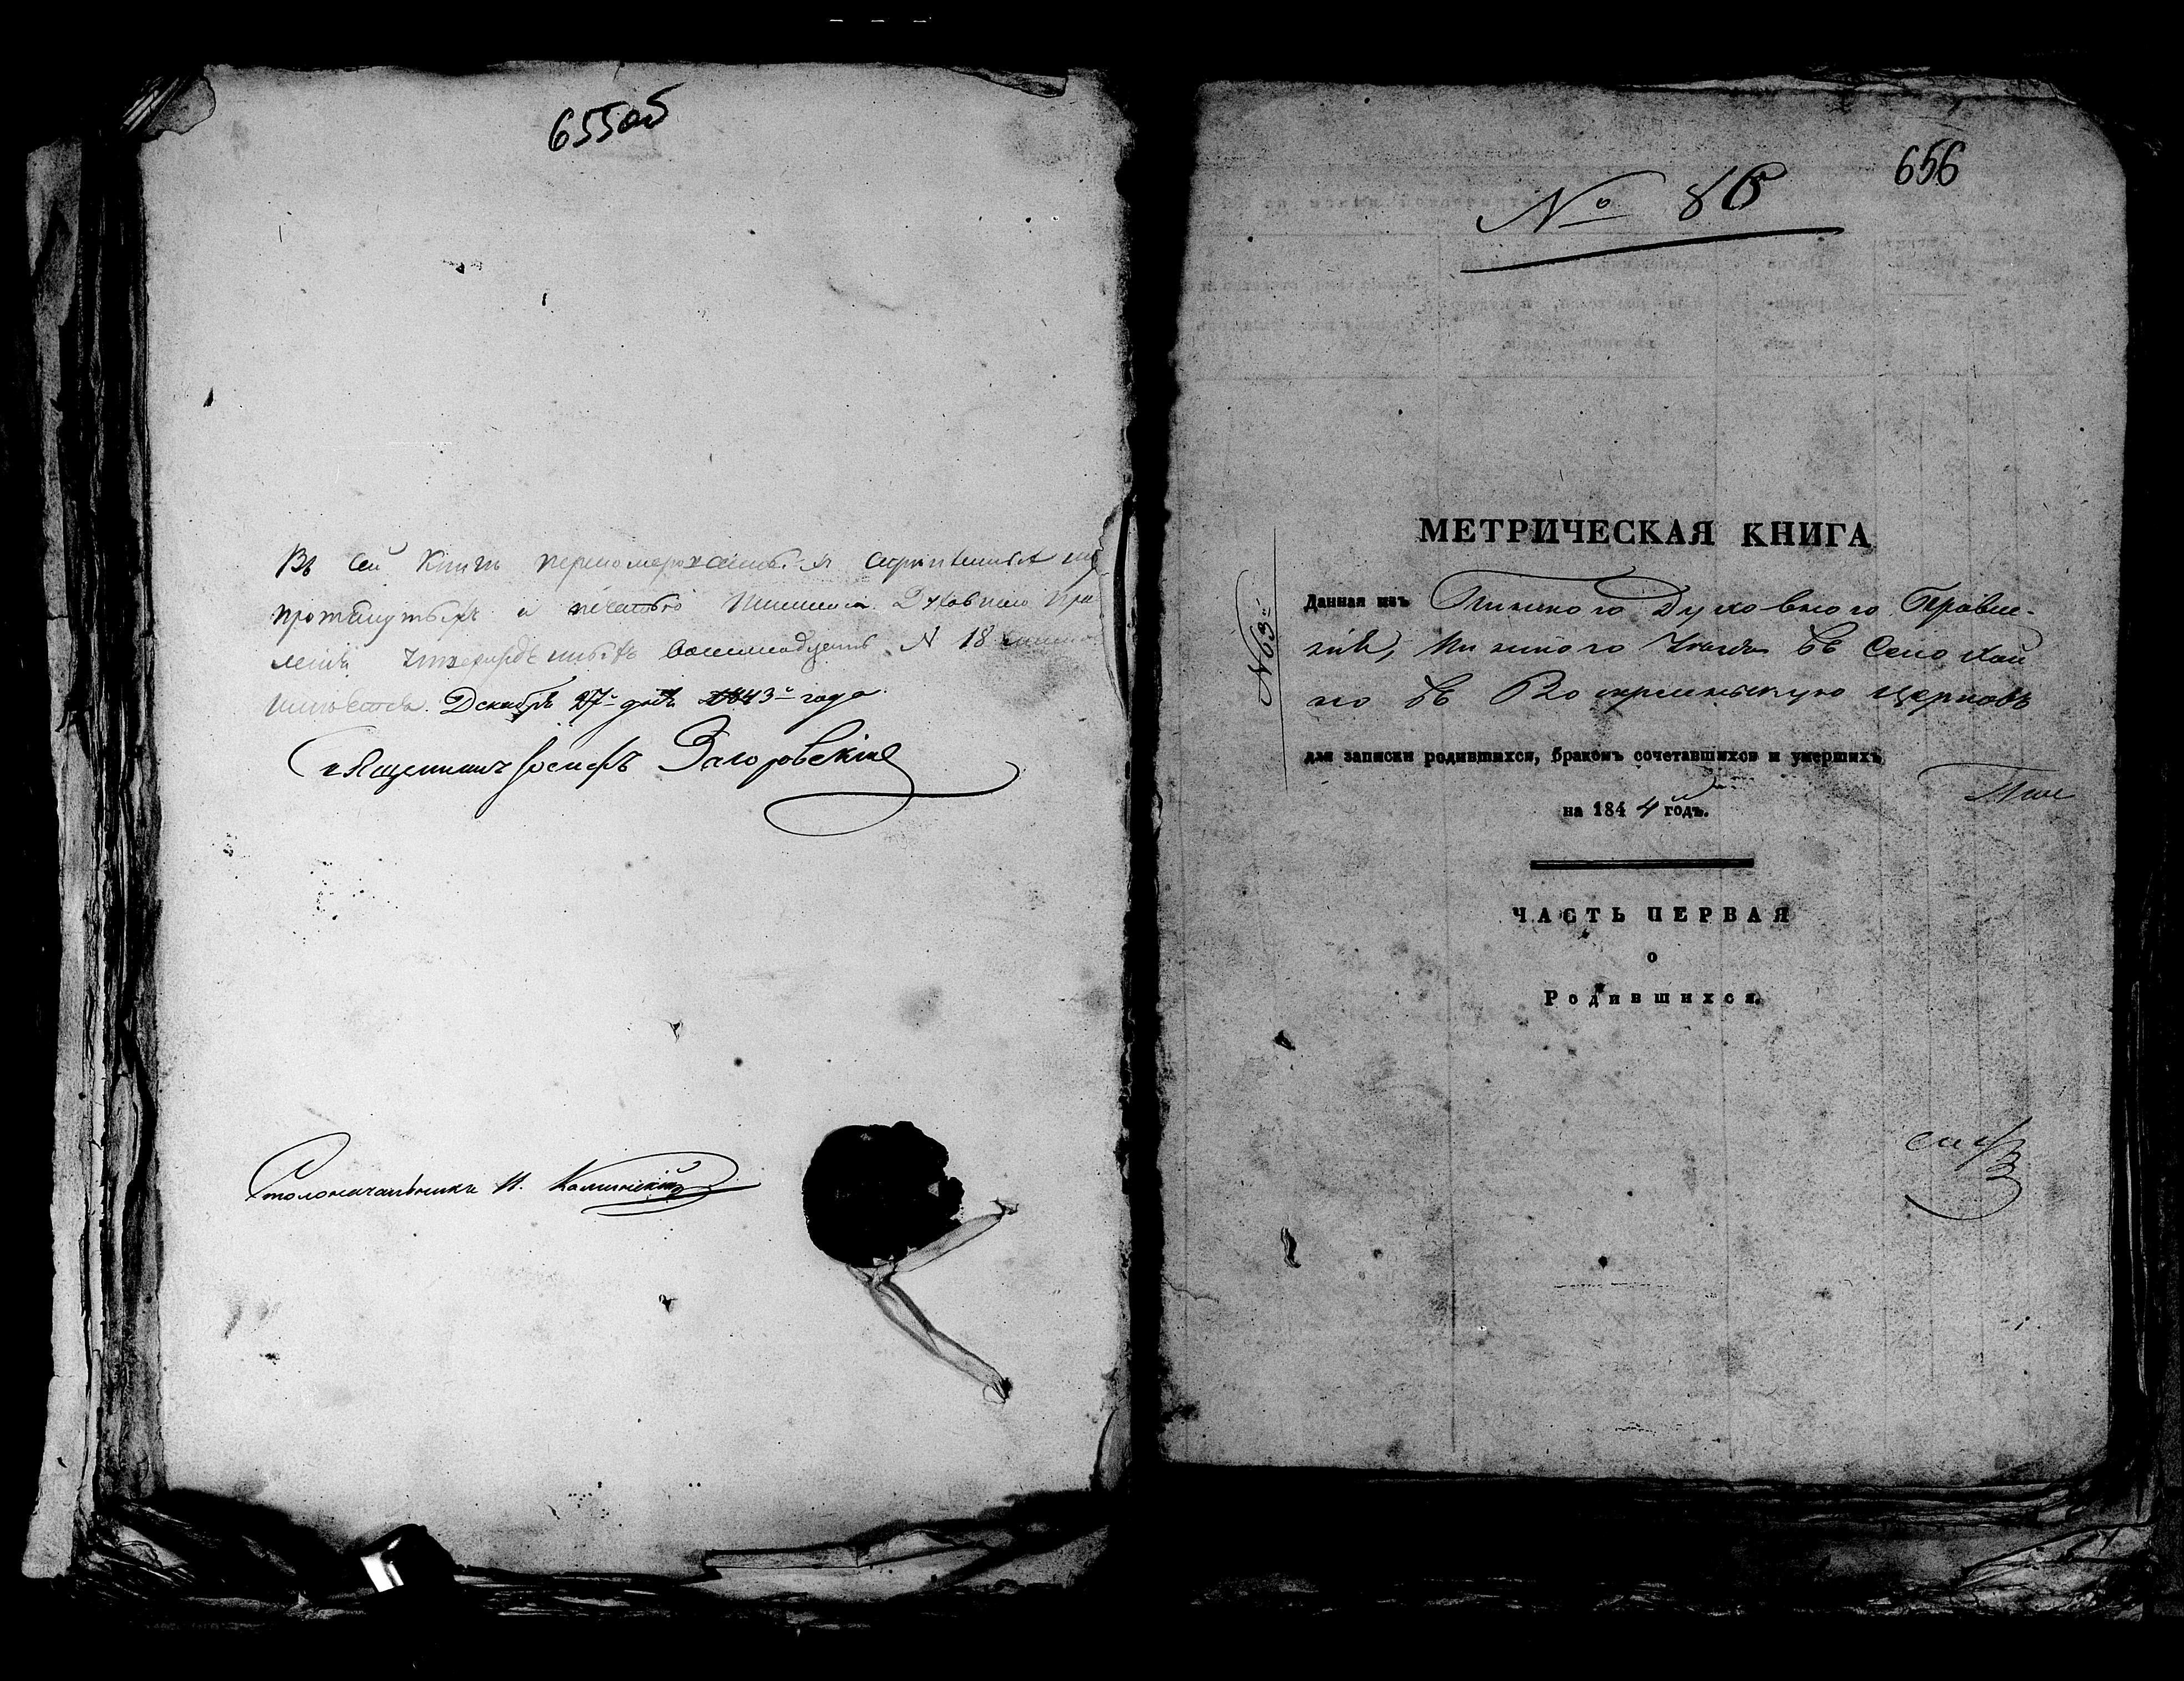 655об
Въ сей Книгѣ перенумерованныхъ скрѣпленныхъ
протянутыхъ и печатью Пинскаго Духовнаго Пра-
вленія утвержденныхъ восемнадцать N 18 листо
Декабря 27 дня 1843 года.
Священникъ Іосифъ Загоровскій
Столоначальникъ И. Калинскій
656
№ 86
МЕТРИЧЕСКАЯ КНИГА
№ 63
Данная изъ Пинскаго Духовнаго Правле-
нія, Пинскаго Уѣзда въ Село
въ Воскресенскую Церковь
для записки родившихся, бракомъ сочетавшихся и умершихъ
на 1844 годъ.
ЧАСТЬ ПЕРВАЯ
о
Родившихся.